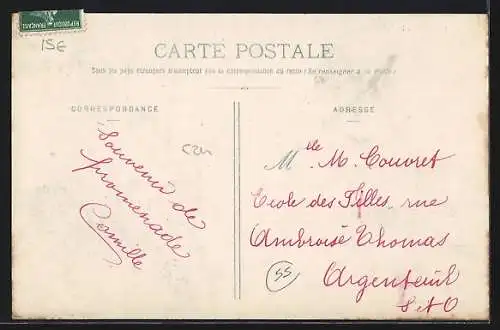 REPUBLIQUE FRANÇAISE
15€
CARTE POSTALE
Tous les pays étrangers n'acceptent pas la correspondance au recto (Se renseigner à la Poste)
CORRESPONDANCE
ADRESSE
Souvenir de
promenade
Camille
Mlle M. Couvret
Ecole des Filles, rue
Ambroise Thomas
Argenteuil
S et O
55